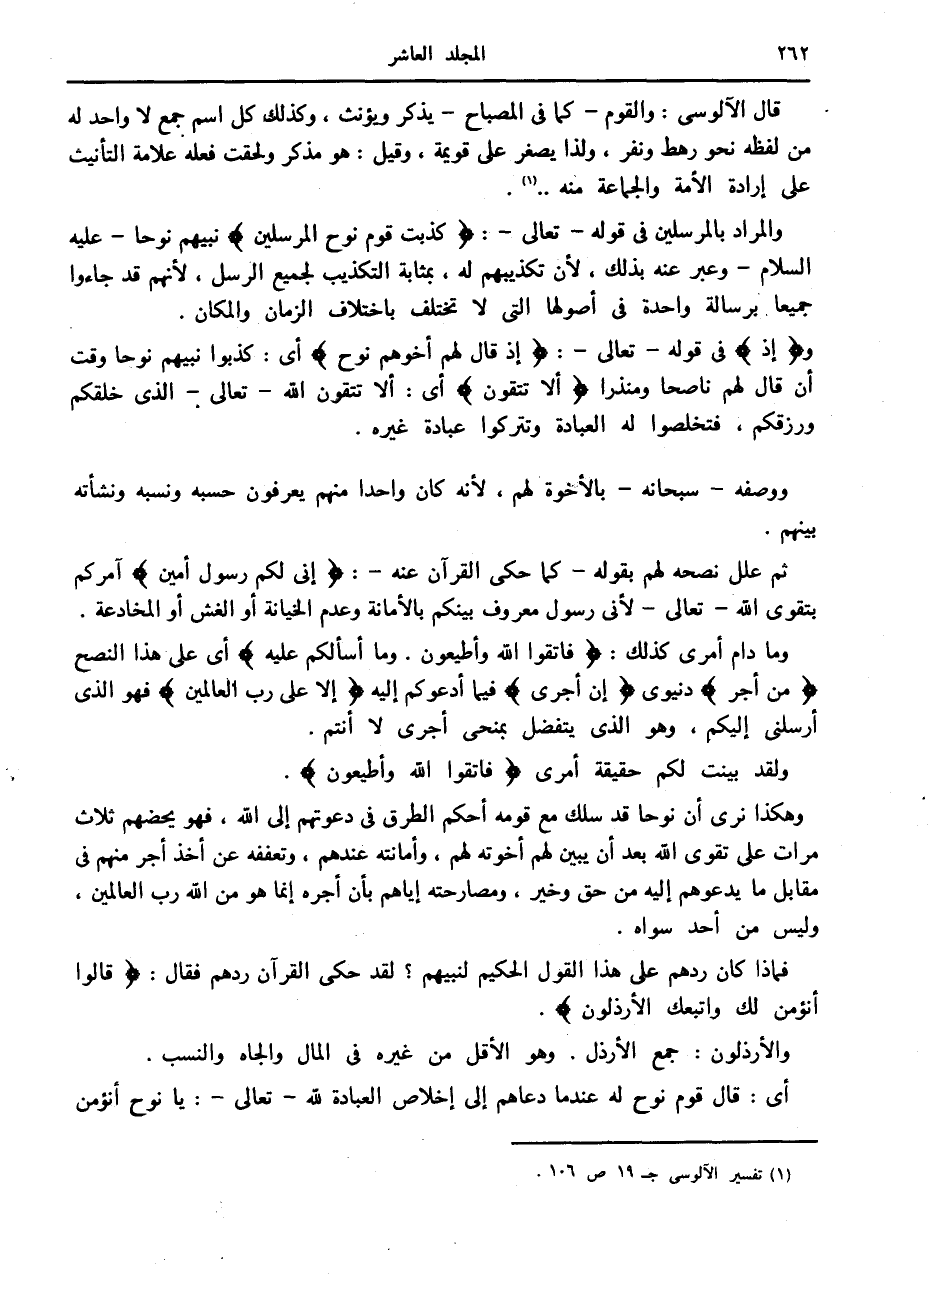 ٢٦٢ المجلد العاشر
قال الآلوسى : والقوم – كما فى المصباح – يذكر ويؤنث ، وكذلك كل اسم جمع لا واحد له
من لفظه نحو رهط ونفر ، ولذا يصغر على قويمة ، وقيل : هو مذكر ولحقت فعله علامة التأنيث
على إرادة الأمة والجماعة منه ..(١) .
والمراد بالمرسلين فى قوله – تعالى – : ﴿ كذبت قوم نوح المرسلين ﴾ نبيهم نوحا – عليه
السلام – وعبر عنه بذلك ، لأن تكذيبهم له ، بمثابة التكذيب لجميع الرسل ، لأنهم قد جاءوا
جميعا برسالة واحدة فى أصولها التى لا تختلف باختلاف الزمان والمكان .
و﴿ إذ ﴾ فى قوله – تعالى – : ﴿ إذ قال لهم أخوهم نوح ﴾ أى : كذبوا نبيهم نوحا وقت
أن قال لهم ناصحا ومنذرا ﴿ ألا تتقون ﴾ أى : ألا تتقون الله – تعالى – الذى خلقكم
ورزقكم ، فتخلصوا له العبادة وتتركوا عبادة غيره .
ووصفه – سبحانه – بالأخوة لهم ، لأنه كان واحدا منهم يعرفون حسبه ونسبه ونشأته
بينهم .
ثم علل نصحه لهم بقوله – كما حكى القرآن عنه – : ﴿ إنى لكم رسول أمين ﴾ آمركم
بتقوى الله – تعالى – لأنى رسول معروف بينكم بالأمانة وعدم الخيانة أو الغش أو المخادعة .
وما دام أمرى كذلك : ﴿ فاتقوا الله وأطيعون . وما أسألكم عليه ﴾ أى على هذا النصح
﴿ من أجر ﴾ دنيوى ﴿ إن أجرى ﴾ فيما أدعوكم إليه ﴿ إلا على رب العالمين ﴾ فهو الذى
أرسلنى إليكم ، وهو الذى يتفضل بمنحى أجرى لا أنتم .
ولقد بينت لكم حقيقة أمرى ﴿ فاتقوا الله وأطيعون ﴾ .
وهكذا نرى أن نوحا قد سلك مع قومه أحكم الطرق فى دعوتهم إلى الله ، فهو يحضهم ثلاث
مرات على تقوى الله بعد أن يبين لهم أخوته لهم ، وأمانته عندهم ، وتعففه عن أخذ أجر منهم فى
مقابل ما يدعوهم إليه من حق وخير ، ومصارحته إياهم بأن أجره إنما هو من الله رب العالمين ،
وليس من أحد سواه .
فماذا كان ردهم على هذا القول الحكيم لنبيهم ؟ لقد حكى القرآن ردهم فقال : ﴿ قالوا
أنؤمن لك واتبعك الأرذلون ﴾ .
والأرذلون : جمع الأرذل . وهو الأقل من غيره فى المال والجاه والنسب .
أى : قال قوم نوح له عندما دعاهم إلى إخلاص العبادة لله – تعالى – : يا نوح أنؤمن
(١) تفسير الآلوسى جـ ١٩ ص ١٠٦ .